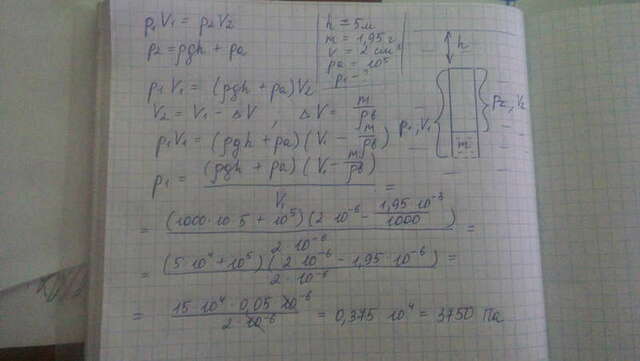 p₁V₁ = p₂V₂
p₂ = ρgh + pa
h = 5м
m = 1,95 г
V = 2 см³
pa = 10⁵
p₁ - ?
h
p₁V₁ = (ρgh + pa)V₂
V₂ = V₁ - ΔV, ΔV = m/ρв
p₁V₁ = (ρgh + pa)(V₁ - m/ρв)
p₁, V₁
p₂, V₂
m
p₁ = (ρgh + pa)(V₁ - m/ρв) / V₁ =
= (1000·10·5 + 10⁵)(2·10⁻⁶ - 1,95·10⁻³/1000) / 2·10⁻⁶ =
= (5·10⁴ + 10⁵)(2·10⁻⁶ - 1,95·10⁻⁶) / 2·10⁻⁶ =
= 15·10⁴·0,05·10⁻⁶ / 2·10⁻⁶ = 0,375·10⁴ = 3750 Па